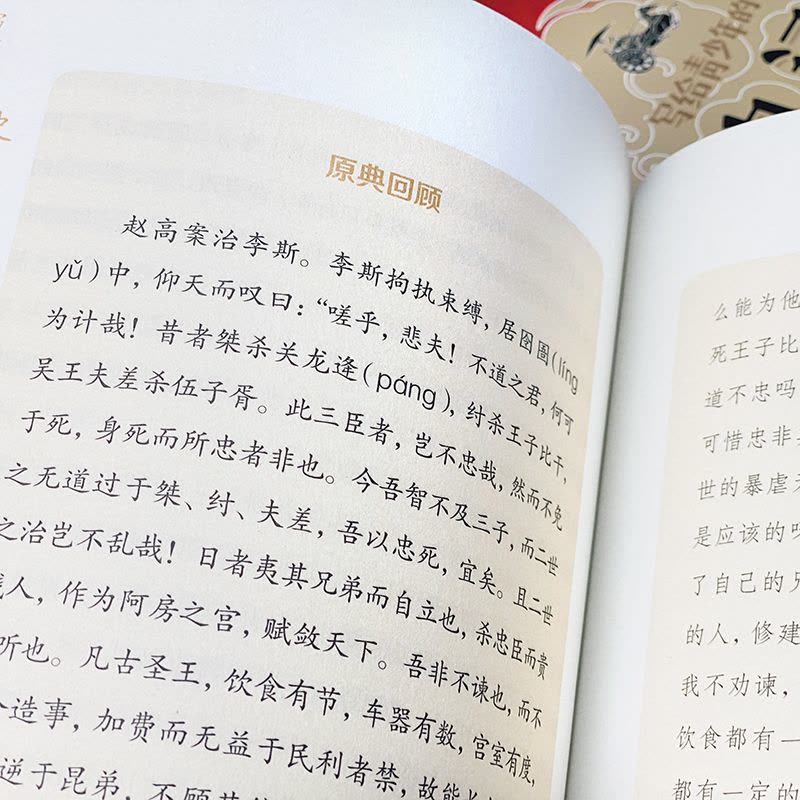 史
写给青少年的
原典回顾
赵高案治李斯。李斯拘执束缚，居囹圄(líng
yǔ)中，仰天而叹曰：“嗟乎，悲夫！不道之君，何可
为计哉！昔者桀杀关龙逄(páng)，纣杀王子比干，
吴王夫差杀伍子胥。此三臣者，岂不忠哉，然而不免
于死，身死而所忠者非也。今吾智不及三子，而二世
之无道过于桀、纣、夫差，吾以忠死，宜矣。且二世
之治岂不乱哉！日者夷其兄弟而自立也，杀忠臣而贵
人，作为阿房之宫，赋敛天下。吾非不谏也，而不
听也。凡古圣王，饮食有节，车器有数，宫室有度，
造事，加费而无益于民利者禁，故能
逆于昆弟，不顾其
么能为他
死王子比
道不忠吗
可惜忠非
世的暴虐
是应该的
了自己的兄
的人，修建
我不劝谏，
饮食都有一
都有一定的